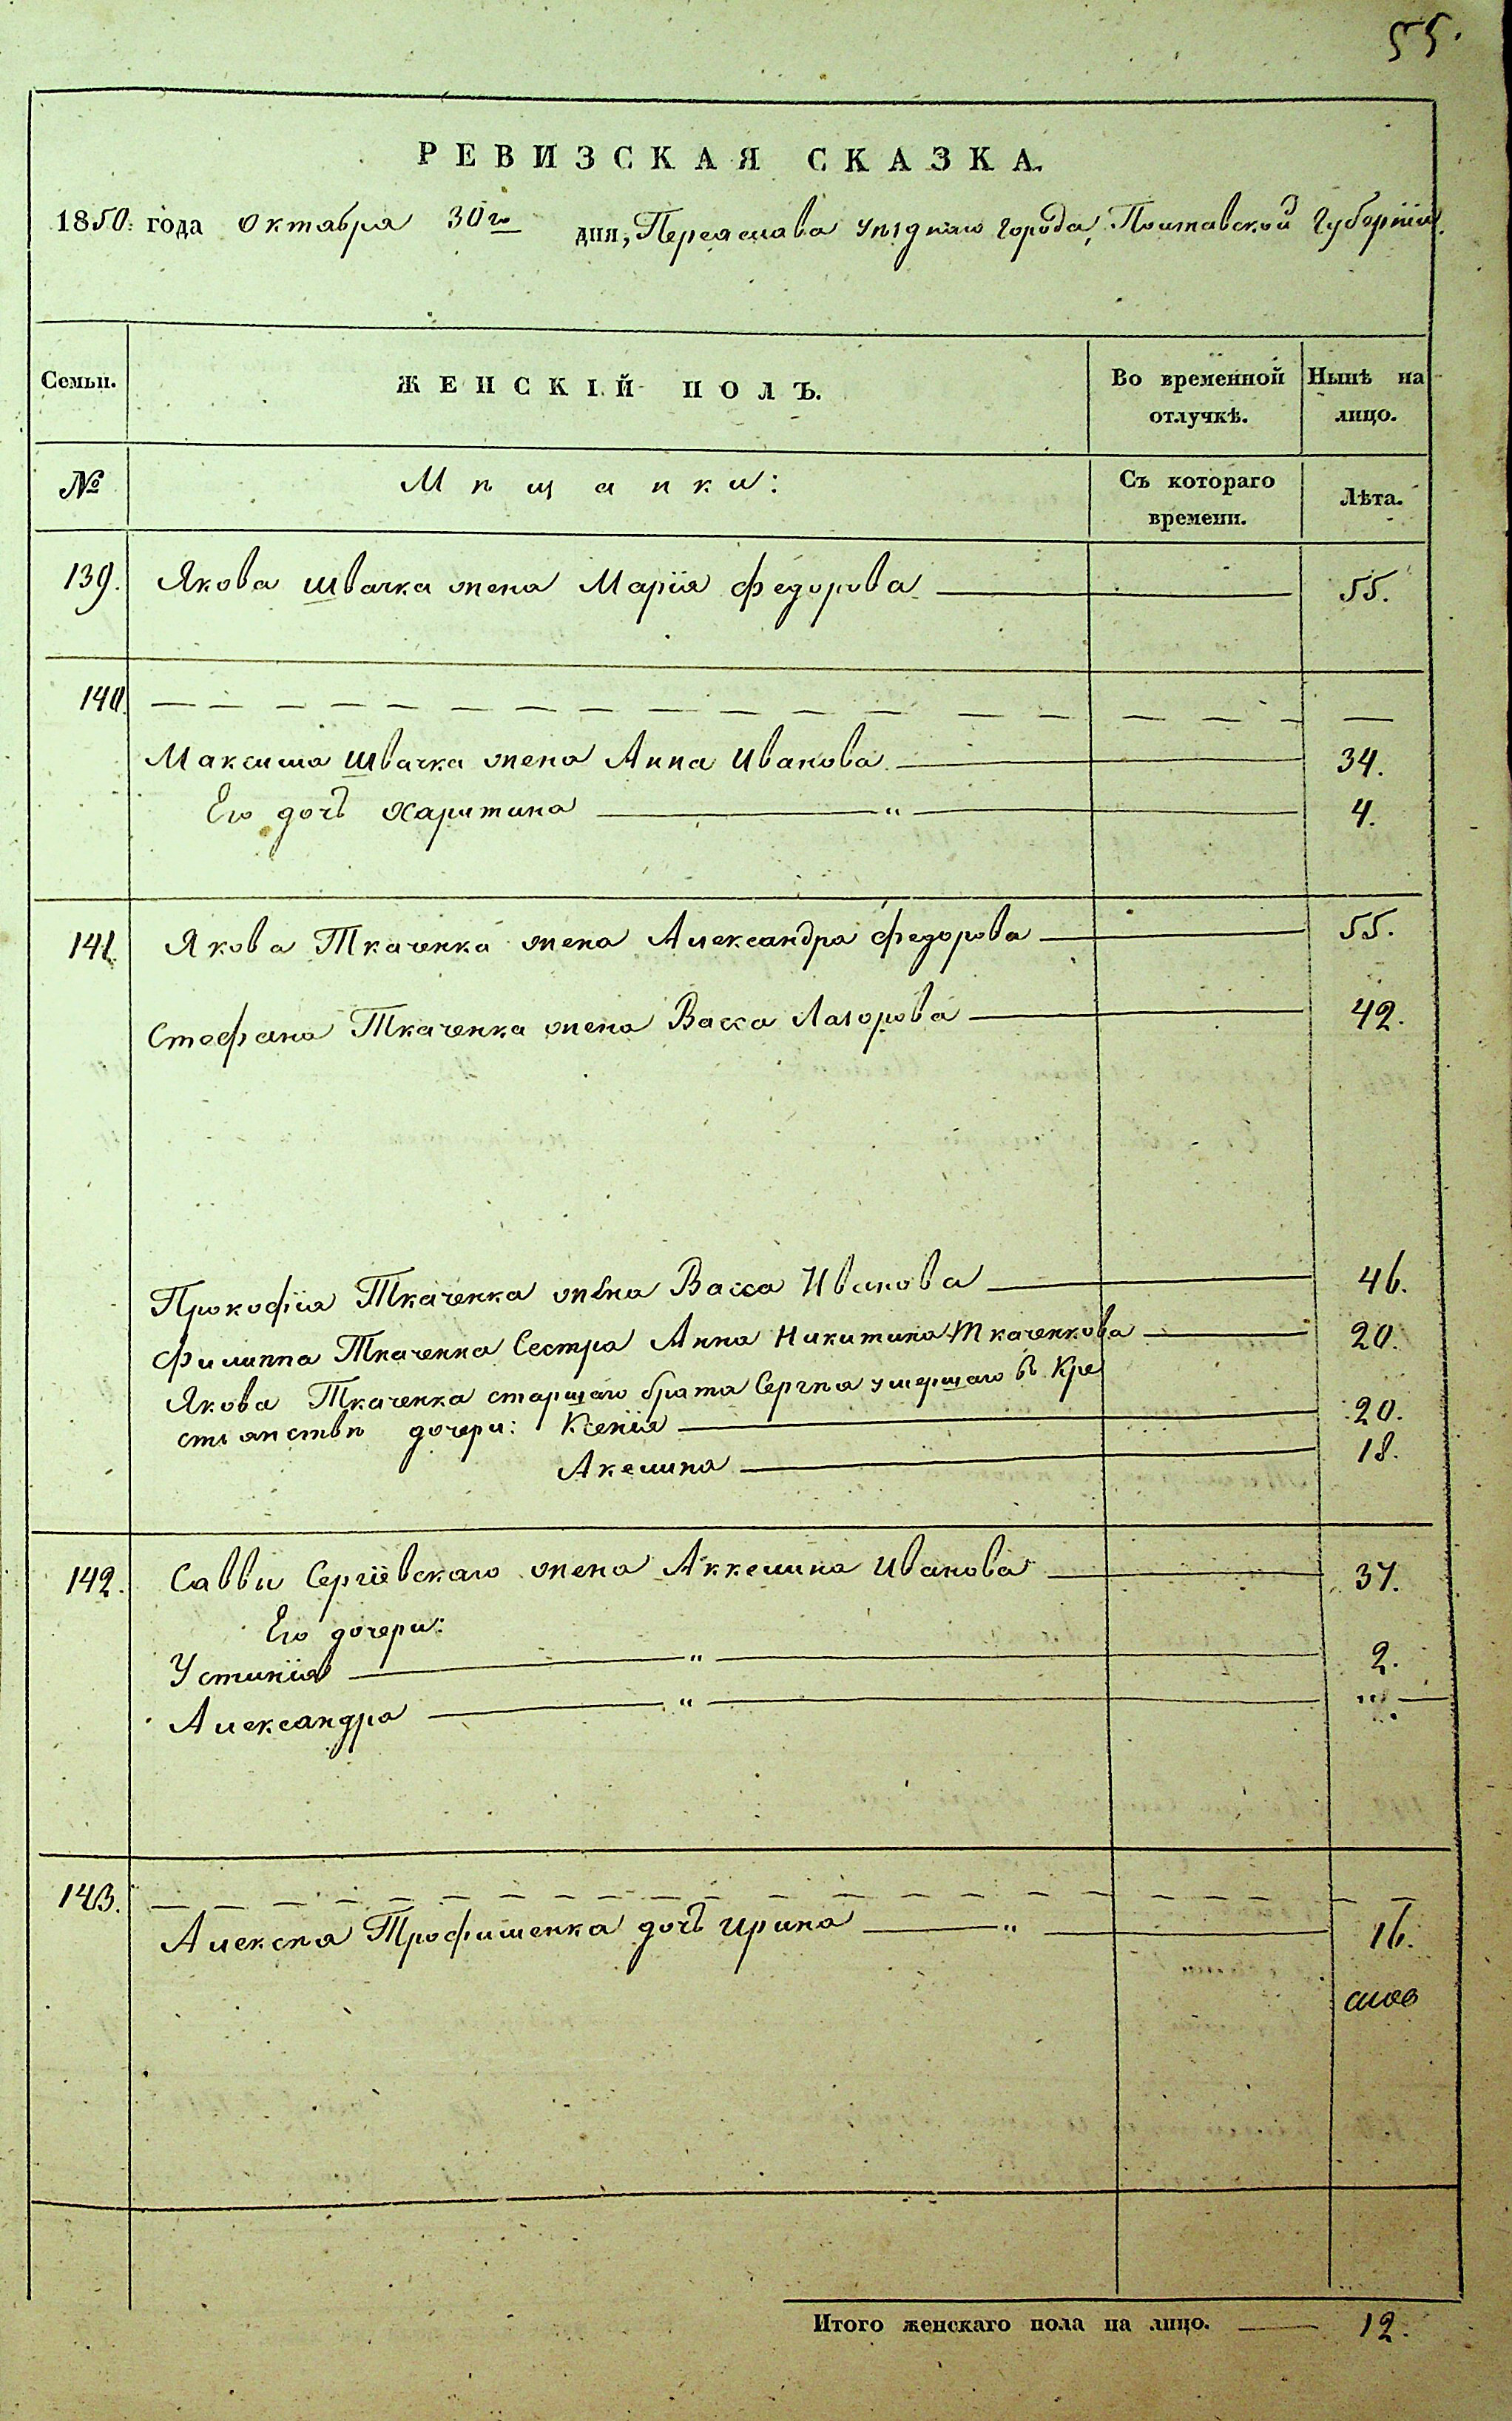 55.
РЕВИЗСКАЯ СКАЗКА.
1850. года Октября 30го дня, Переяслава уѣзднаго города, Полтавской Губерніи.
Семьи. ЖЕНСКІЙ ПОЛЪ. Во временной отлучкѣ. Нынѣ на лицо.
№ Мѣщанки: Съ котораго времени. Лѣта.
139. Якова Швачка жена Марія Федорова 55.
140.
Максима Швачка жена Анна Иванова 34.
Его дочь Харитина " 4.
141. Якова Ткаченка жена Александра Федорова 55.
Стефана Ткаченка жена Васса Лазорова 42.
Прокофія Ткаченка жена Васса Иванова 46.
Филиппа Ткаченка Сестра Анна Никитина Ткаченкова 20.
Якова Ткаченка старшаго брата Сергѣа умершаго въ Кре
стьянствѣ дочери: Ксенія 20.
Акелина 18.
142. Саввы Сергіевскаго жена Аккелина Иванова 37.
Его дочери:
Устинія " 2.
Александра "
143.
Алексѣя Трофименка дочь Ирина " 16.
Итого женскаго пола на лицо. 12.